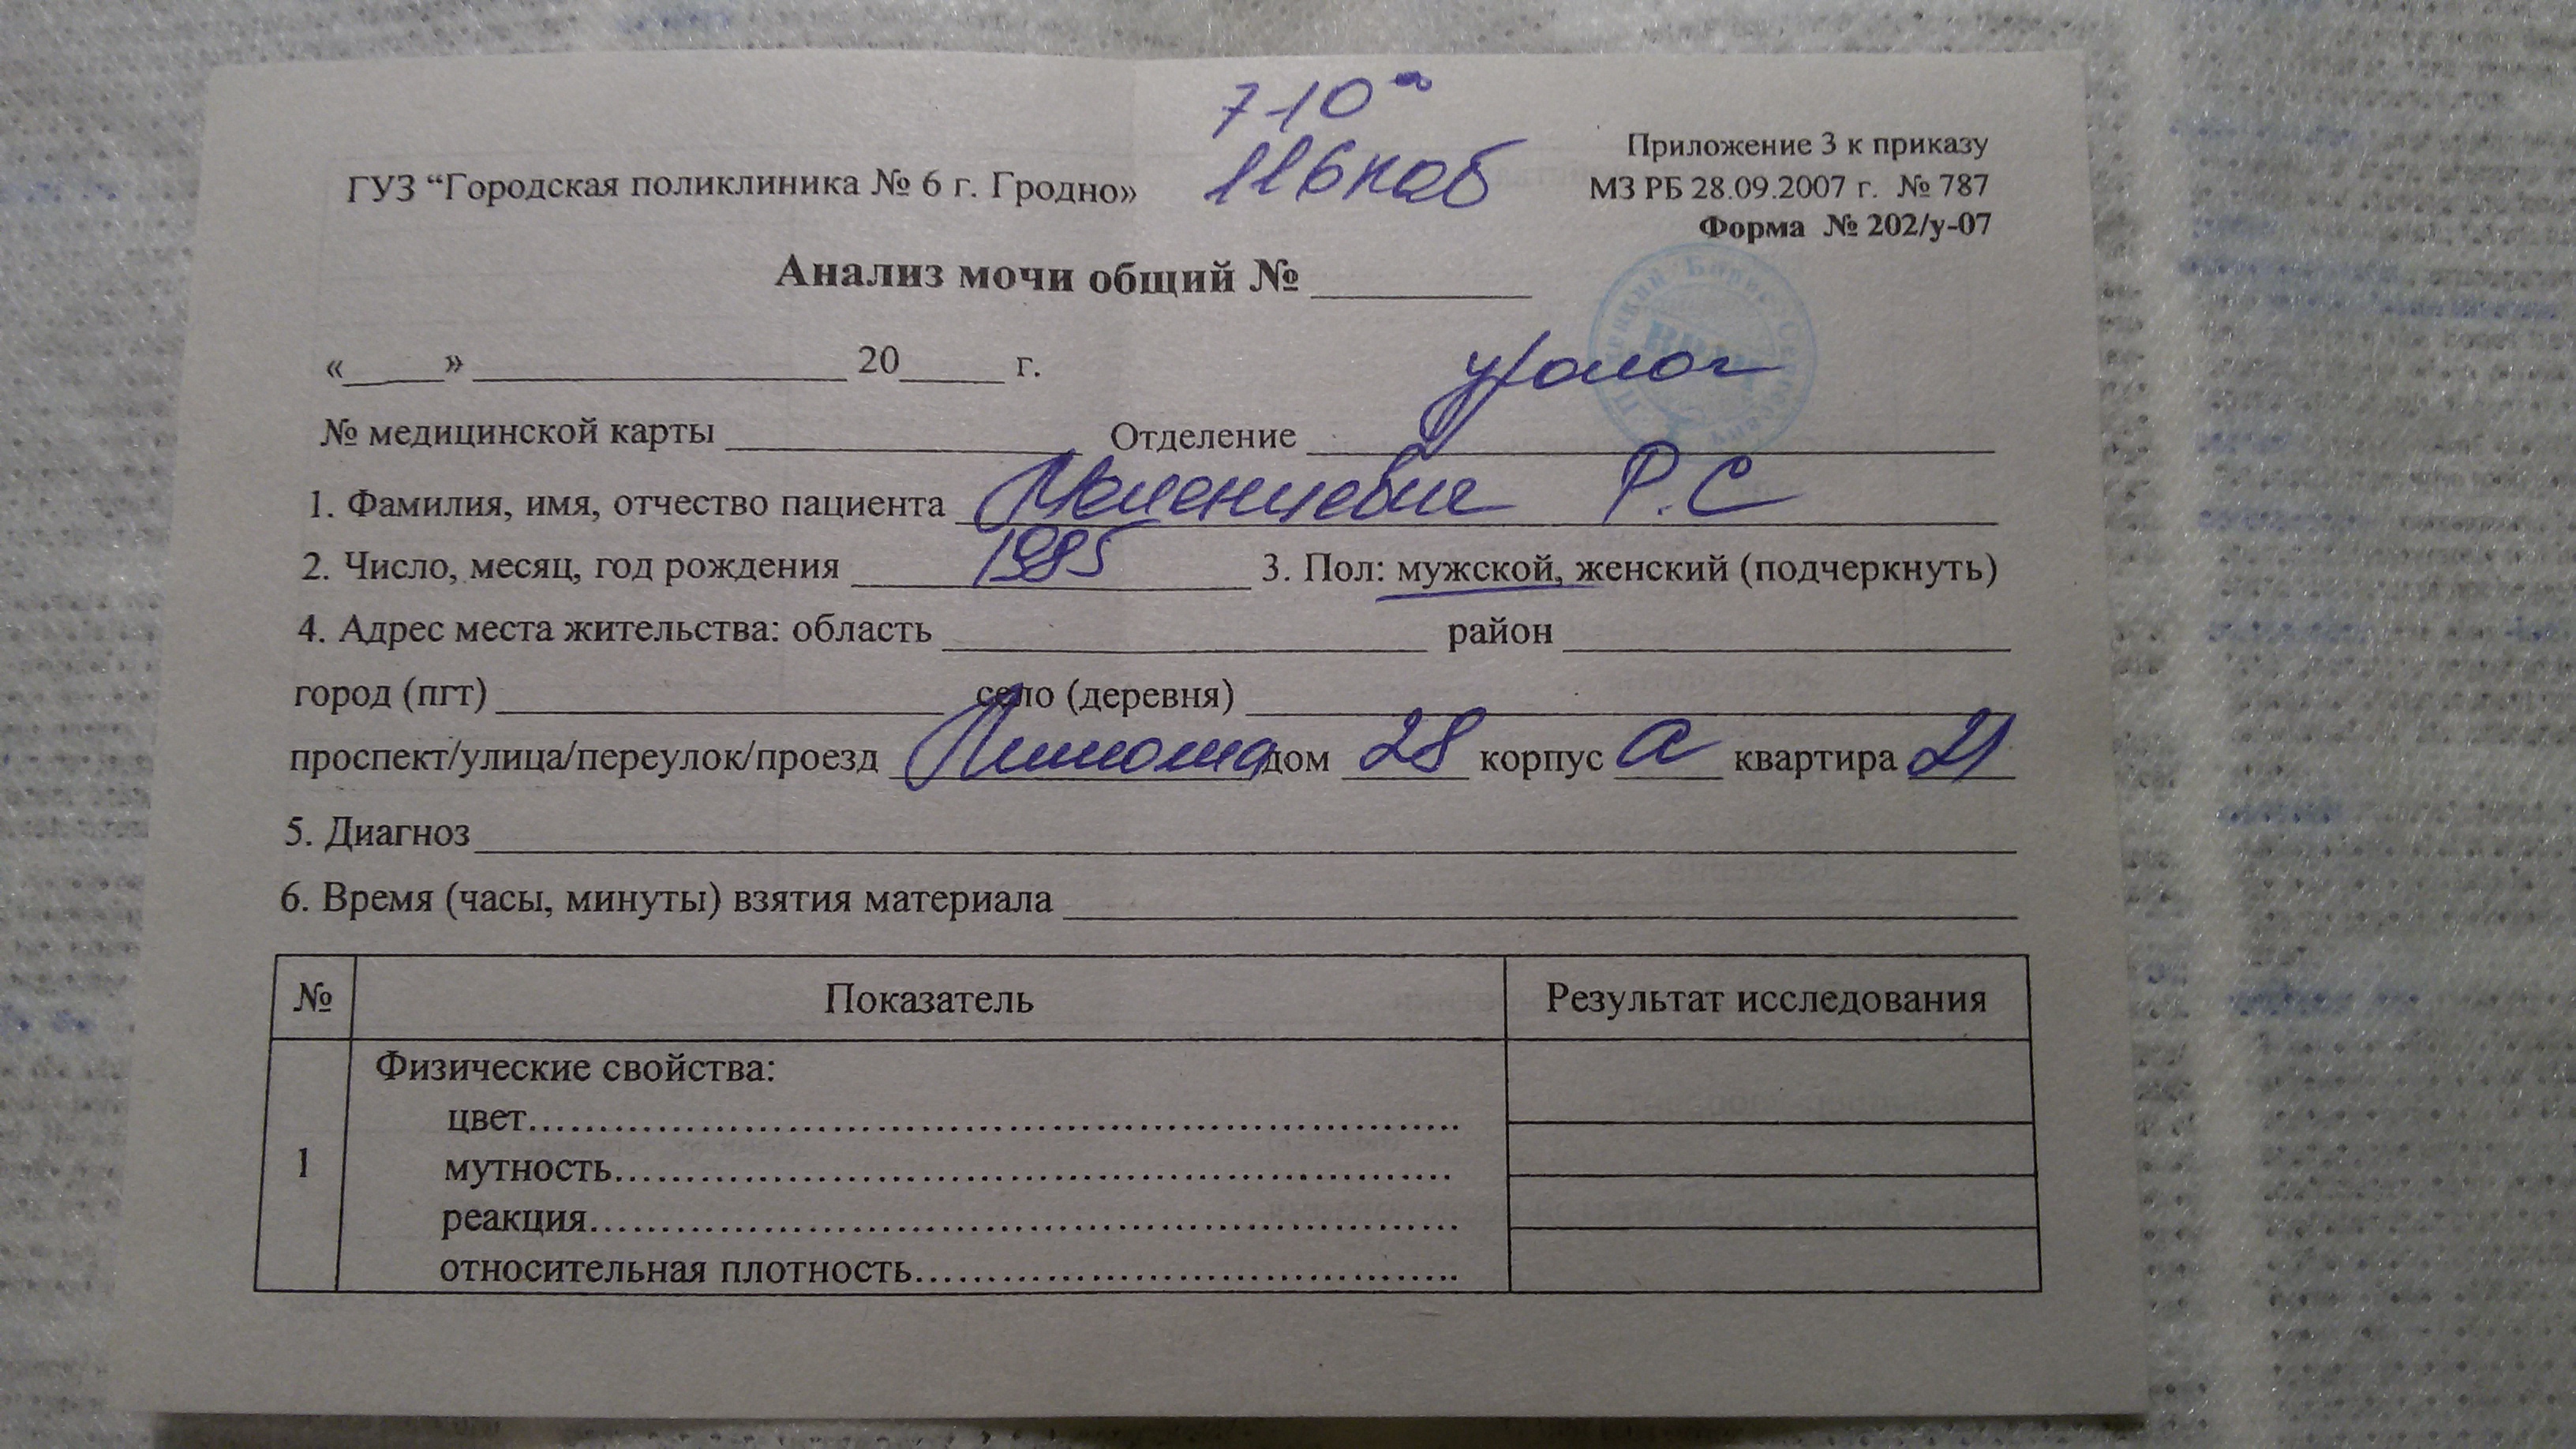 7-10⁰⁰
116 каб
Приложение 3 к приказу
МЗ РБ 28.09.2007 г. № 787
Форма № 202/у-07
ГУЗ “Городская поликлиника № 6 г. Гродно»
Анализ мочи общий № ________
«____» ____________ 20____ г.
уролог
№ медицинской карты ____________ Отделение ____________
1. Фамилия, имя, отчество пациента Р.С
2. Число, месяц, год рождения 1985 3. Пол: мужской, женский (подчеркнуть)
4. Адрес места жительства: область ____________ район ____________
город (пгт) ____________ село (деревня) ____________
проспект/улица/переулок/проезд дом 28 корпус а квартира 21
5. Диагноз ____________
6. Время (часы, минуты) взятия материала ____________
№ Показатель Результат исследования
1 Физические свойства:
цвет....................
мутность....................
реакция....................
относительная плотность....................